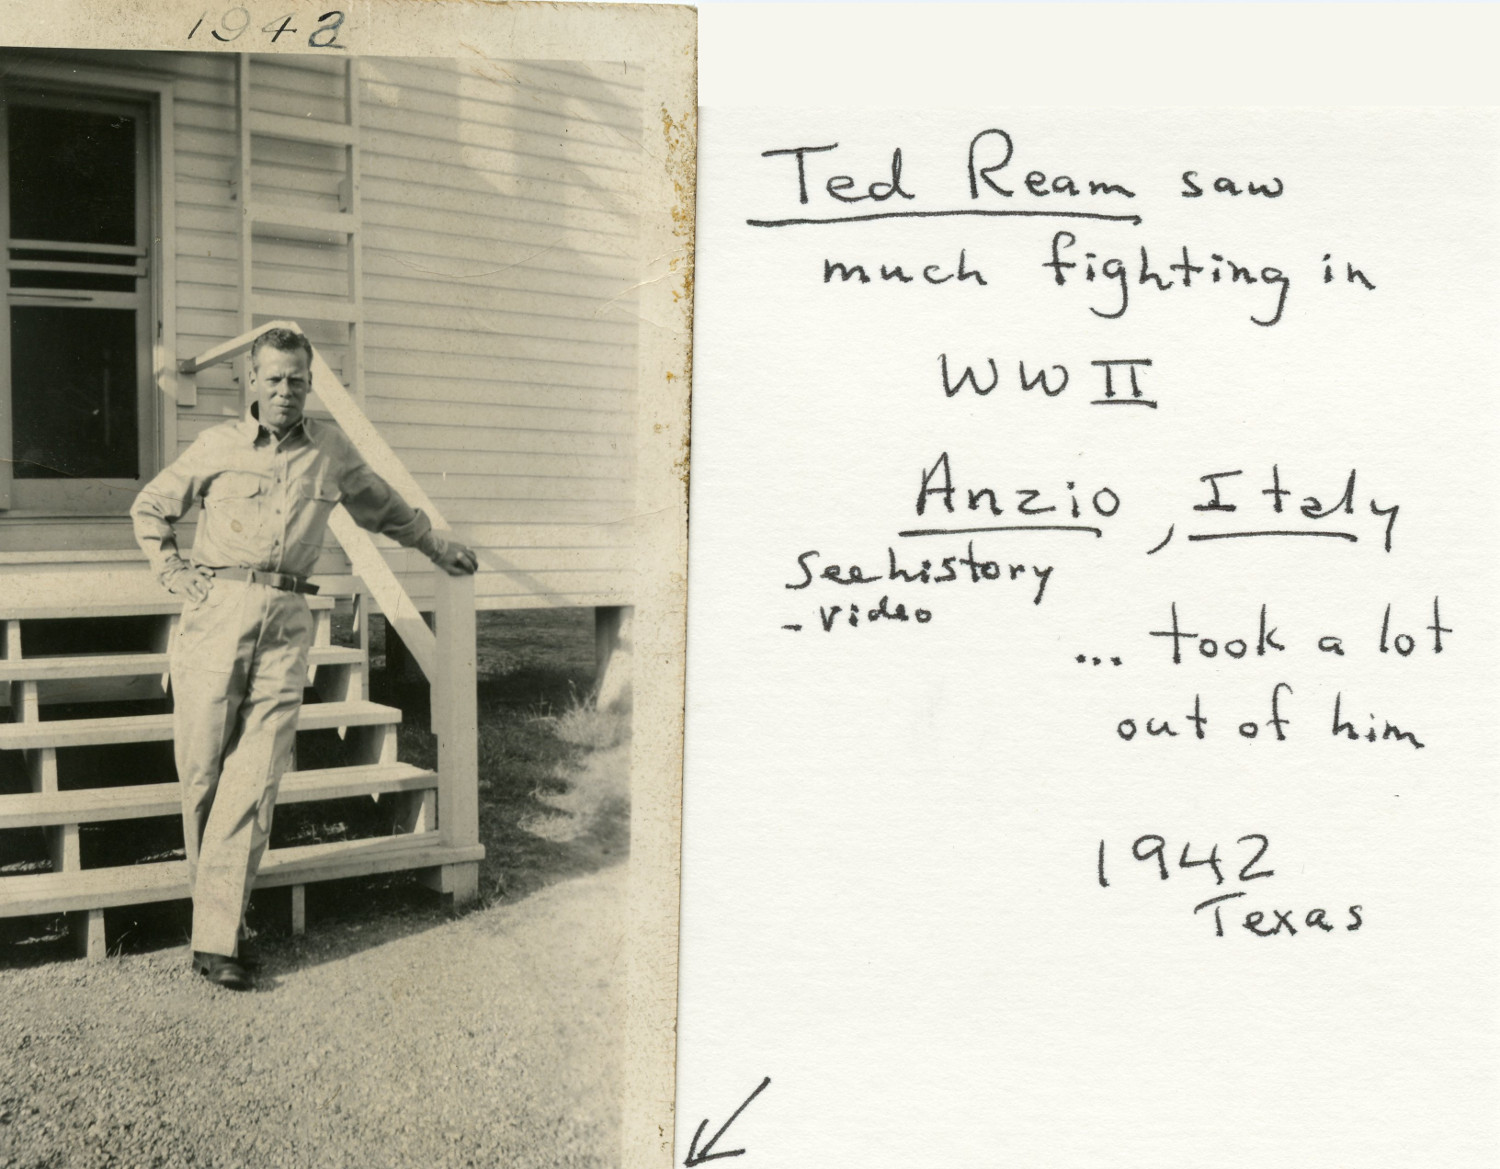 1942
Ted Ream saw
much fighting in
WW II
Anzio, Italy
See history
- video
... took a lot
out of him
1942
Texas